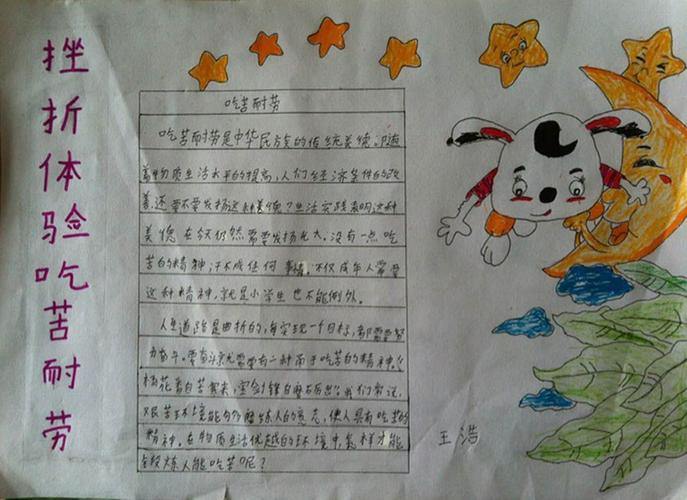 挫折体验吃苦耐劳
吃苦耐劳
吃苦耐劳是中华民族的传统美德。随
着物质生活水平的提高，人们经济条件的改
善，还要不要发扬这种美德？生活实践表明这种
美德在今天仍然需要发扬光大。没有一点吃
苦的精神，干不成任何事情。不仅成年人需要
这种精神，就是小学生也不能例外。
人生道路是曲折的，每实现一个目标，都需要努
力奋斗。要奋斗就需要有一种而于吃苦的精神。
梅花香自苦寒来，宝剑锋自磨石出。我们常说，
艰苦环境能够磨练人的意志，使人具有吃苦的
精神。在物质生活优越的环境中，怎样才能
锻炼人能吃苦呢？
王浩